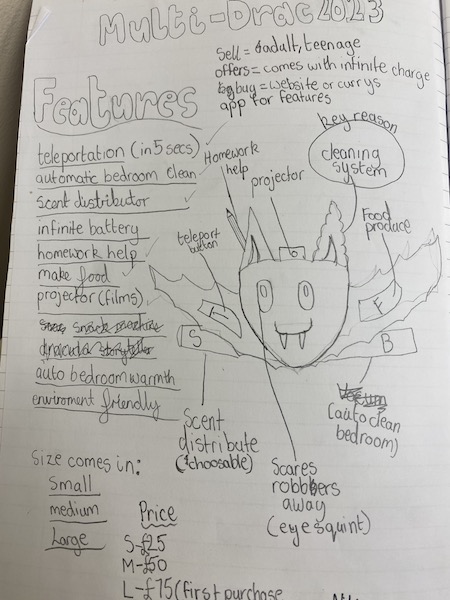 Multi-Drac 2023
Sell = adult, teenage
offers = comes with infinite charge
buy = website or currys
app for features
Features
key reason
cleaning
system
teleportation (in 5 secs)
automatic bedroom clean
scent distributor
infinite battery
homework help
make food
projector (films)
auto bedroom warmth
enviroment friendly
Homework
help
projector
Food
produce
teleport
button
T
F
S
B
Scent
distribute
(choosable)
(auto clean
bedroom)
Scares
robbers
away
(eye squint)
Size comes in:
Small
medium
Large
Price
S-£25
M-£50
L-£75 (first purchase